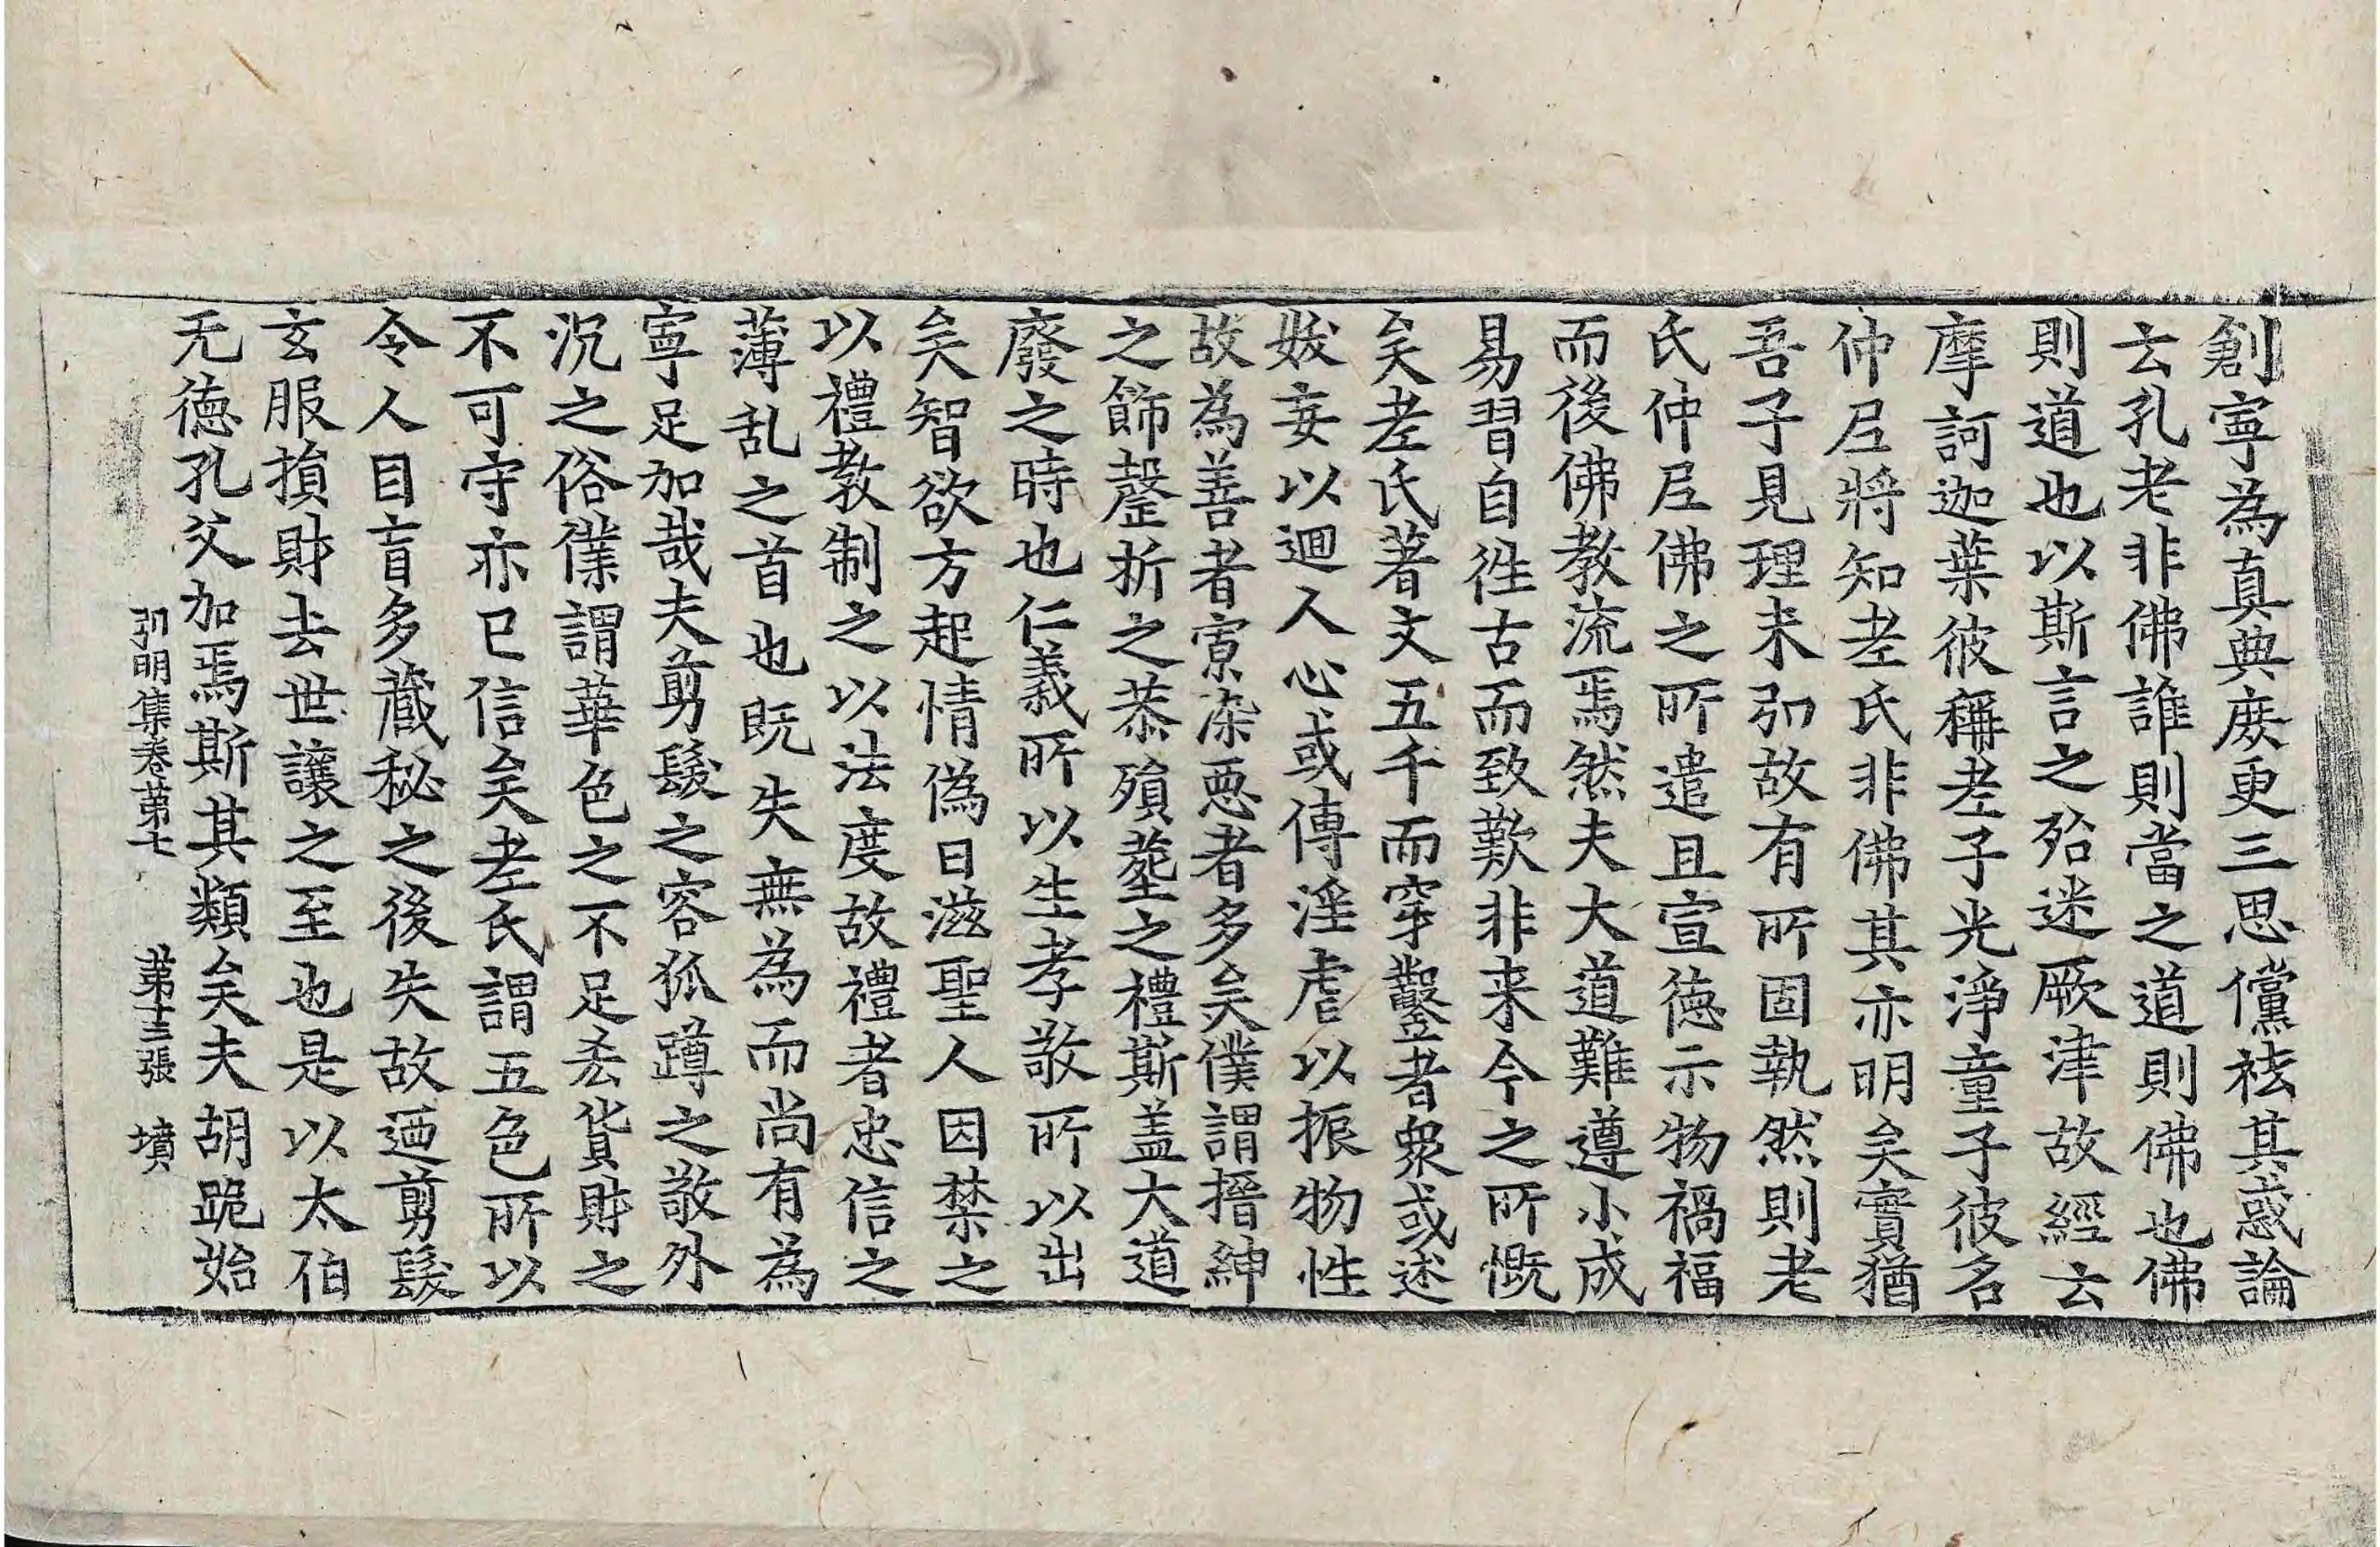 創寧為真典庻更三思儻袪其惑論
云孔老非佛誰則當之道則佛也佛
則道也以斯言之殆迷厥津故經云
摩訶迦葉彼稱老子光淨童子彼名
仲尼將知老氏非佛其亦明矣實猶
吾子見理未弘故有所固執然則老
氏仲尼佛之所遣且宣德示物禍福
而後佛教流焉然夫大道難遵小成
易習自徃古而致歎非来今之所慨
矣老氏著文五千而穿鑿者衆或述
妖妄以迴人心或傳淫虐以振物性
故為善者寡染惡者多矣僕謂搢紳
之飾罄折之恭殞葬之禮斯盖大道
廢之時也仁義所以生孝敬所以出
矣智欲方起情偽日滋聖人因禁之
以禮教制之以法度故禮者忠信之
薄乱之首也既失無為而尚有為
寧足加哉夫剪髮之容狐蹲之敬外
沉之俗僕謂華色之不足吝貨財之
不可守亦已信矣老氏謂五色所以
令人目盲多藏秘之後失故迺剪髮
玄服損財去世讓之至也是以太伯
无德孔父加焉斯其類矣夫胡跪始
弘明集卷第七 第十三張 墳